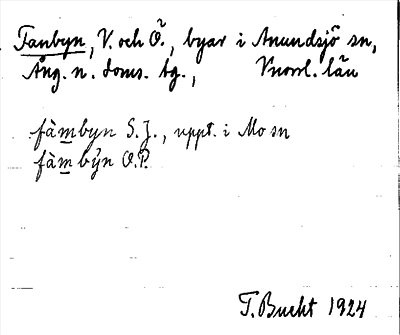 Fanbyn, V. och Ö., byar i Anundsjö sn,
Ång. n. doms. tg., Vnorrl. län
fàmbyn S.J., uppt. i Mo sn
fàmby̆n O.P.
T. Bucht 1924